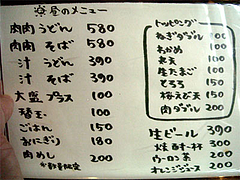 楽屋のメニュー
肉肉うどん 580
肉肉そば 580
汁うどん 390
汁そば 390
大盛プラス 100
替玉 100
ごはん 150
おにぎり 180
肉めし 200
トッピング
ねぎダブル 100
わかめ 100
生たまご 100
とろろ 150
梅えび天 150
肉ダブル 200
生ビール 390
焼酎一杯 300
ウーロン茶 200
オレンジジュース 200